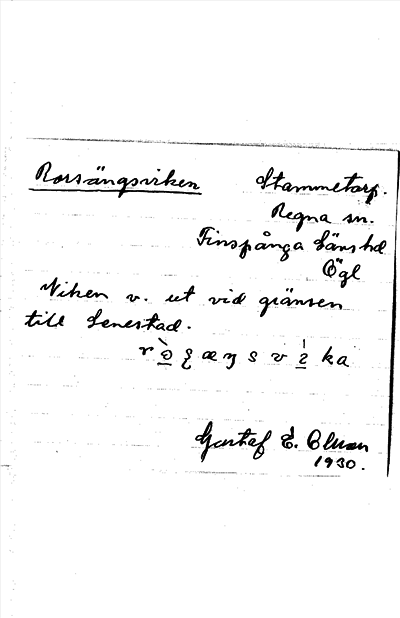 Rorsängsviken
Stammetorp.
Regna sn.
Finspånga läns hd
Ögl
Viken v. ut vid gränsen
till Senestad.
Gustaf E.
1930.